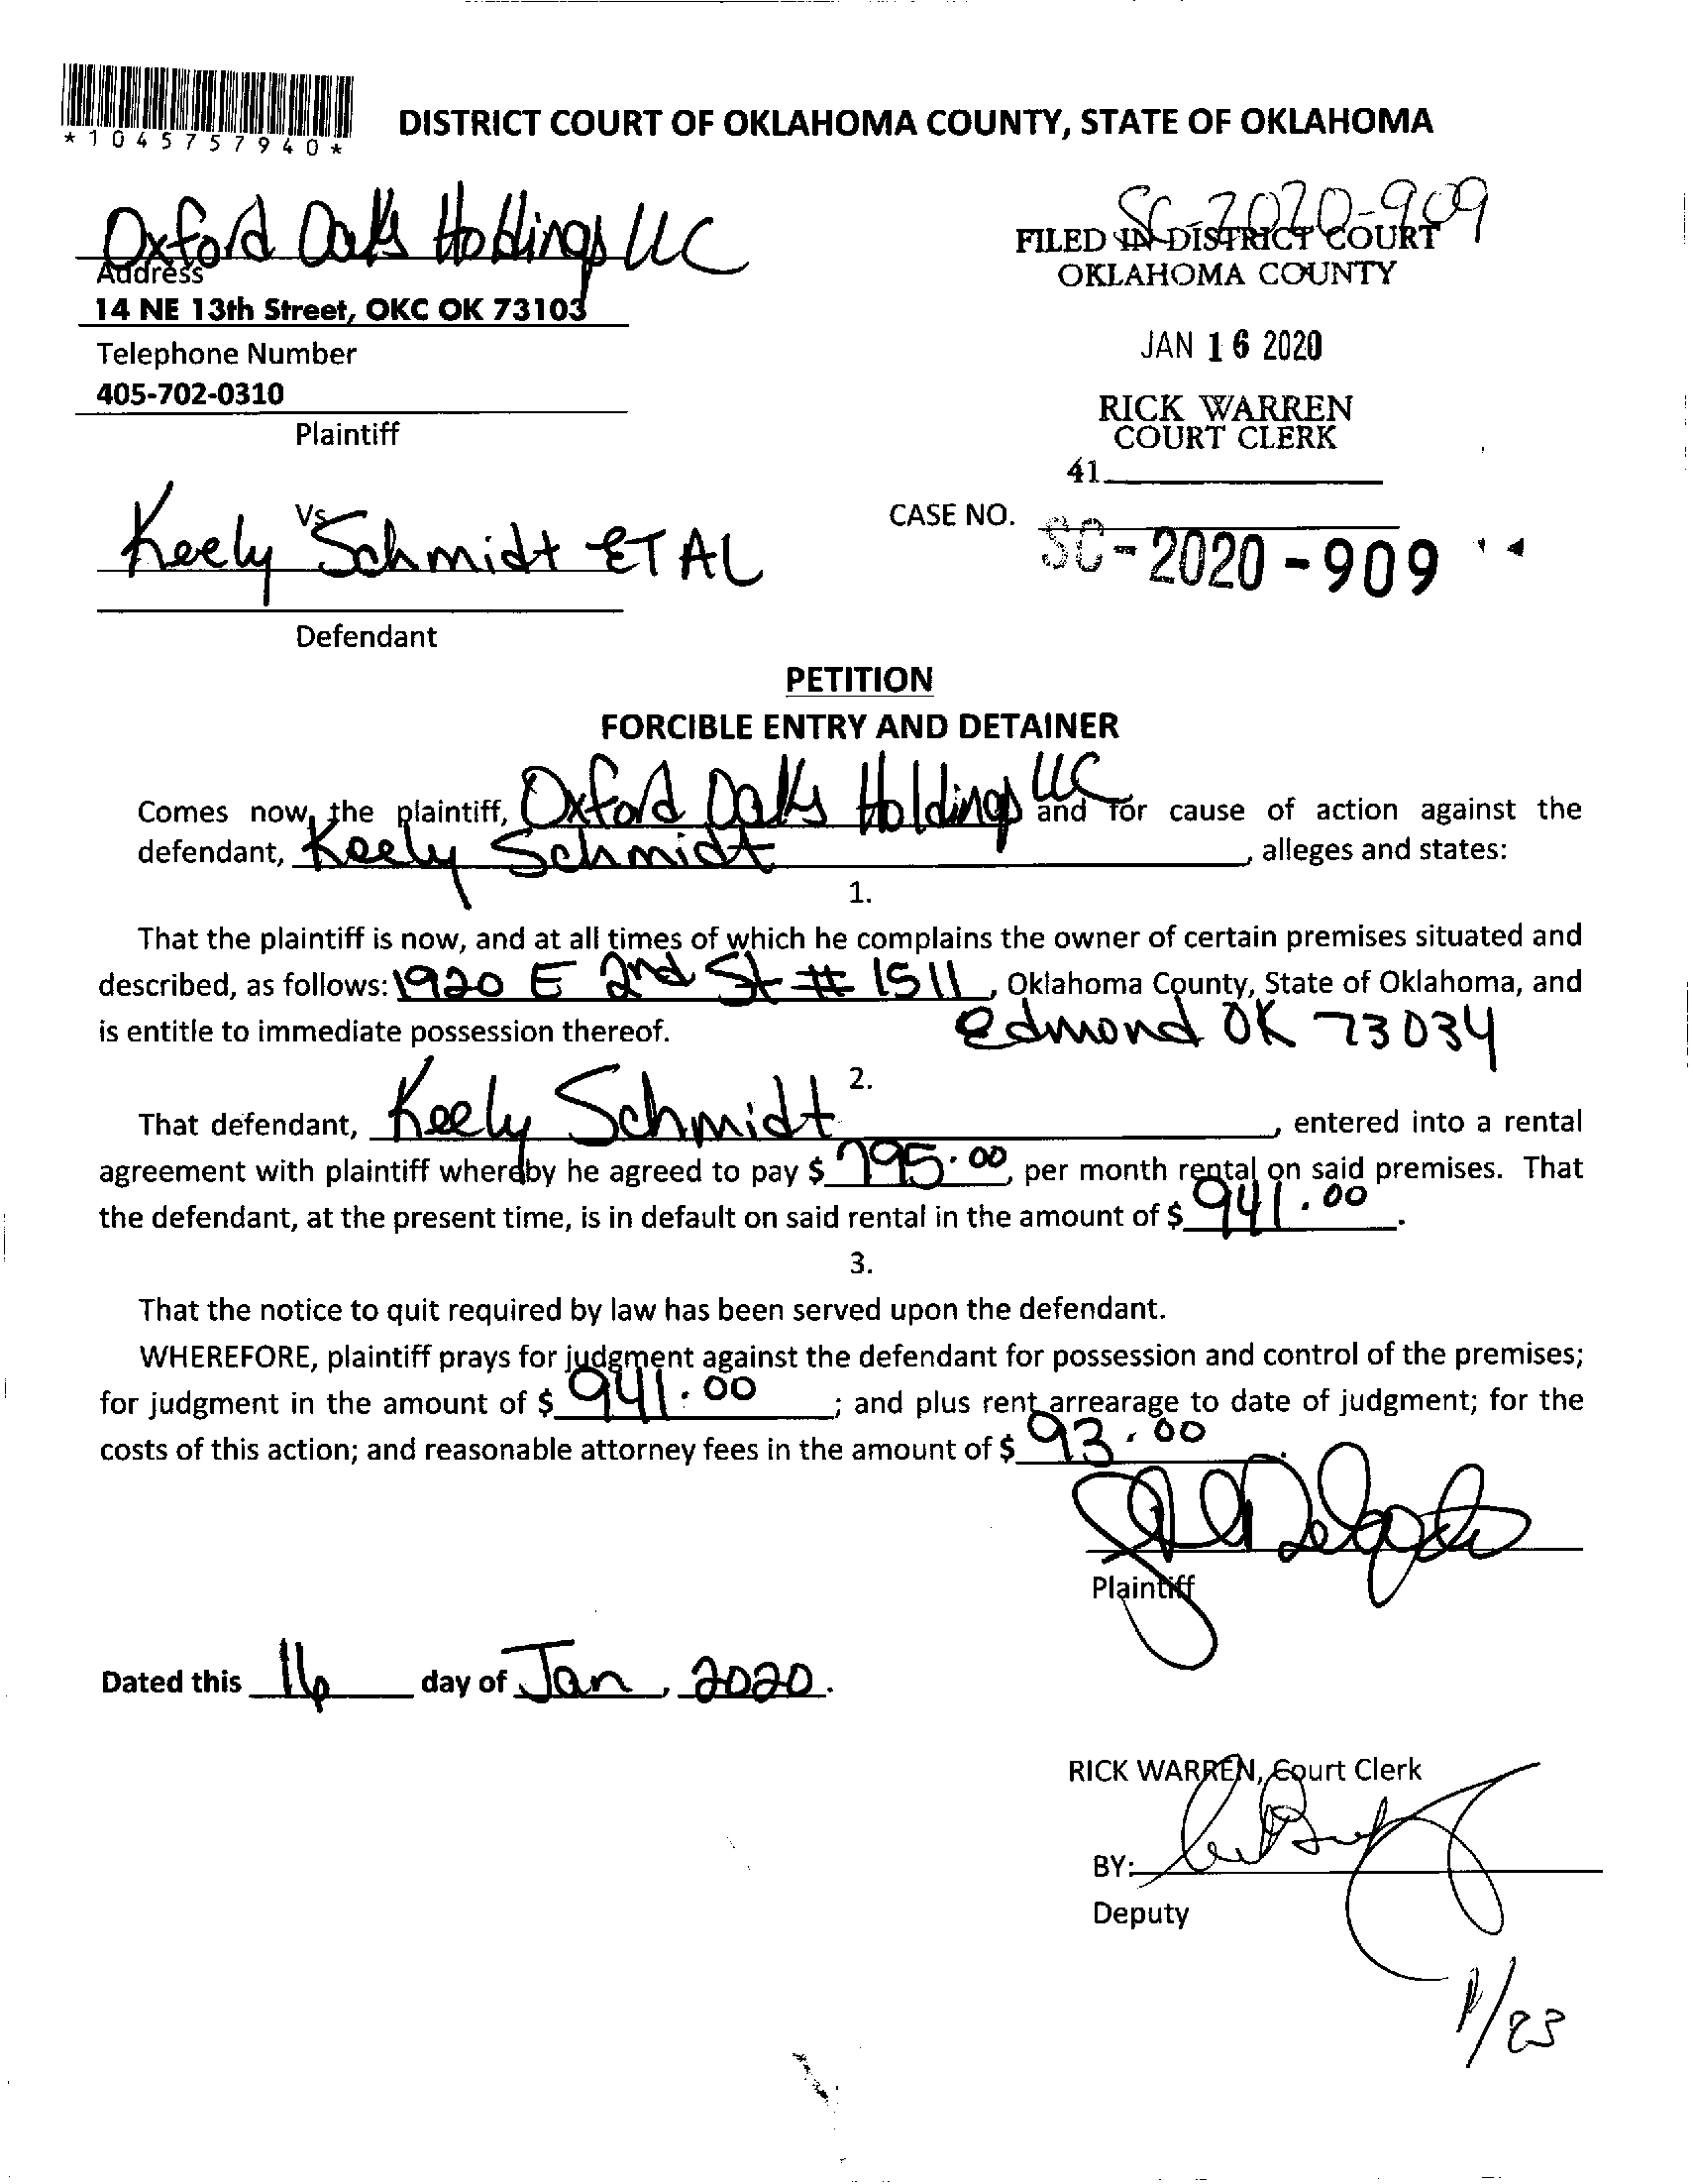 *1045757940*
DISTRICT COURT OF OKLAHOMA COUNTY, STATE OF OKLAHOMA
SC-2020-909
Oxford Oaks Holdings LLC
FILED IN DISTRICT COURT
OKLAHOMA COUNTY
Address
14 NE 13th Street, OKC OK 73103
JAN 16 2020
Telephone Number
405-702-0310
RICK WARREN
COURT CLERK
Plaintiff
41
Vs
CASE NO. SC-2020-909
Keely Schmidt ET AL
Defendant
PETITION
FORCIBLE ENTRY AND DETAINER
Comes now, the plaintiff, Oxford Oaks Holdings LLC and for cause of action against the
defendant, Keely Schmidt, alleges and states:
1.
That the plaintiff is now, and at all times of which he complains the owner of certain premises situated and
described, as follows: 1920 E 2nd St # 1511, Oklahoma County, State of Oklahoma, and
is entitle to immediate possession thereof. Edmond OK 73034
2.
That defendant, Keely Schmidt, entered into a rental
agreement with plaintiff whereby he agreed to pay $ 795.00, per month rental on said premises. That
the defendant, at the present time, is in default on said rental in the amount of $ 941.00.
3.
That the notice to quit required by law has been served upon the defendant.
WHEREFORE, plaintiff prays for judgment against the defendant for possession and control of the premises;
for judgment in the amount of $ 941.00; and plus rent arrearage to date of judgment; for the
costs of this action; and reasonable attorney fees in the amount of $ 93.00.
Plaintiff
Dated this 16 day of Jan, 2020.
RICK WARREN, Court Clerk
BY:
Deputy
1/23